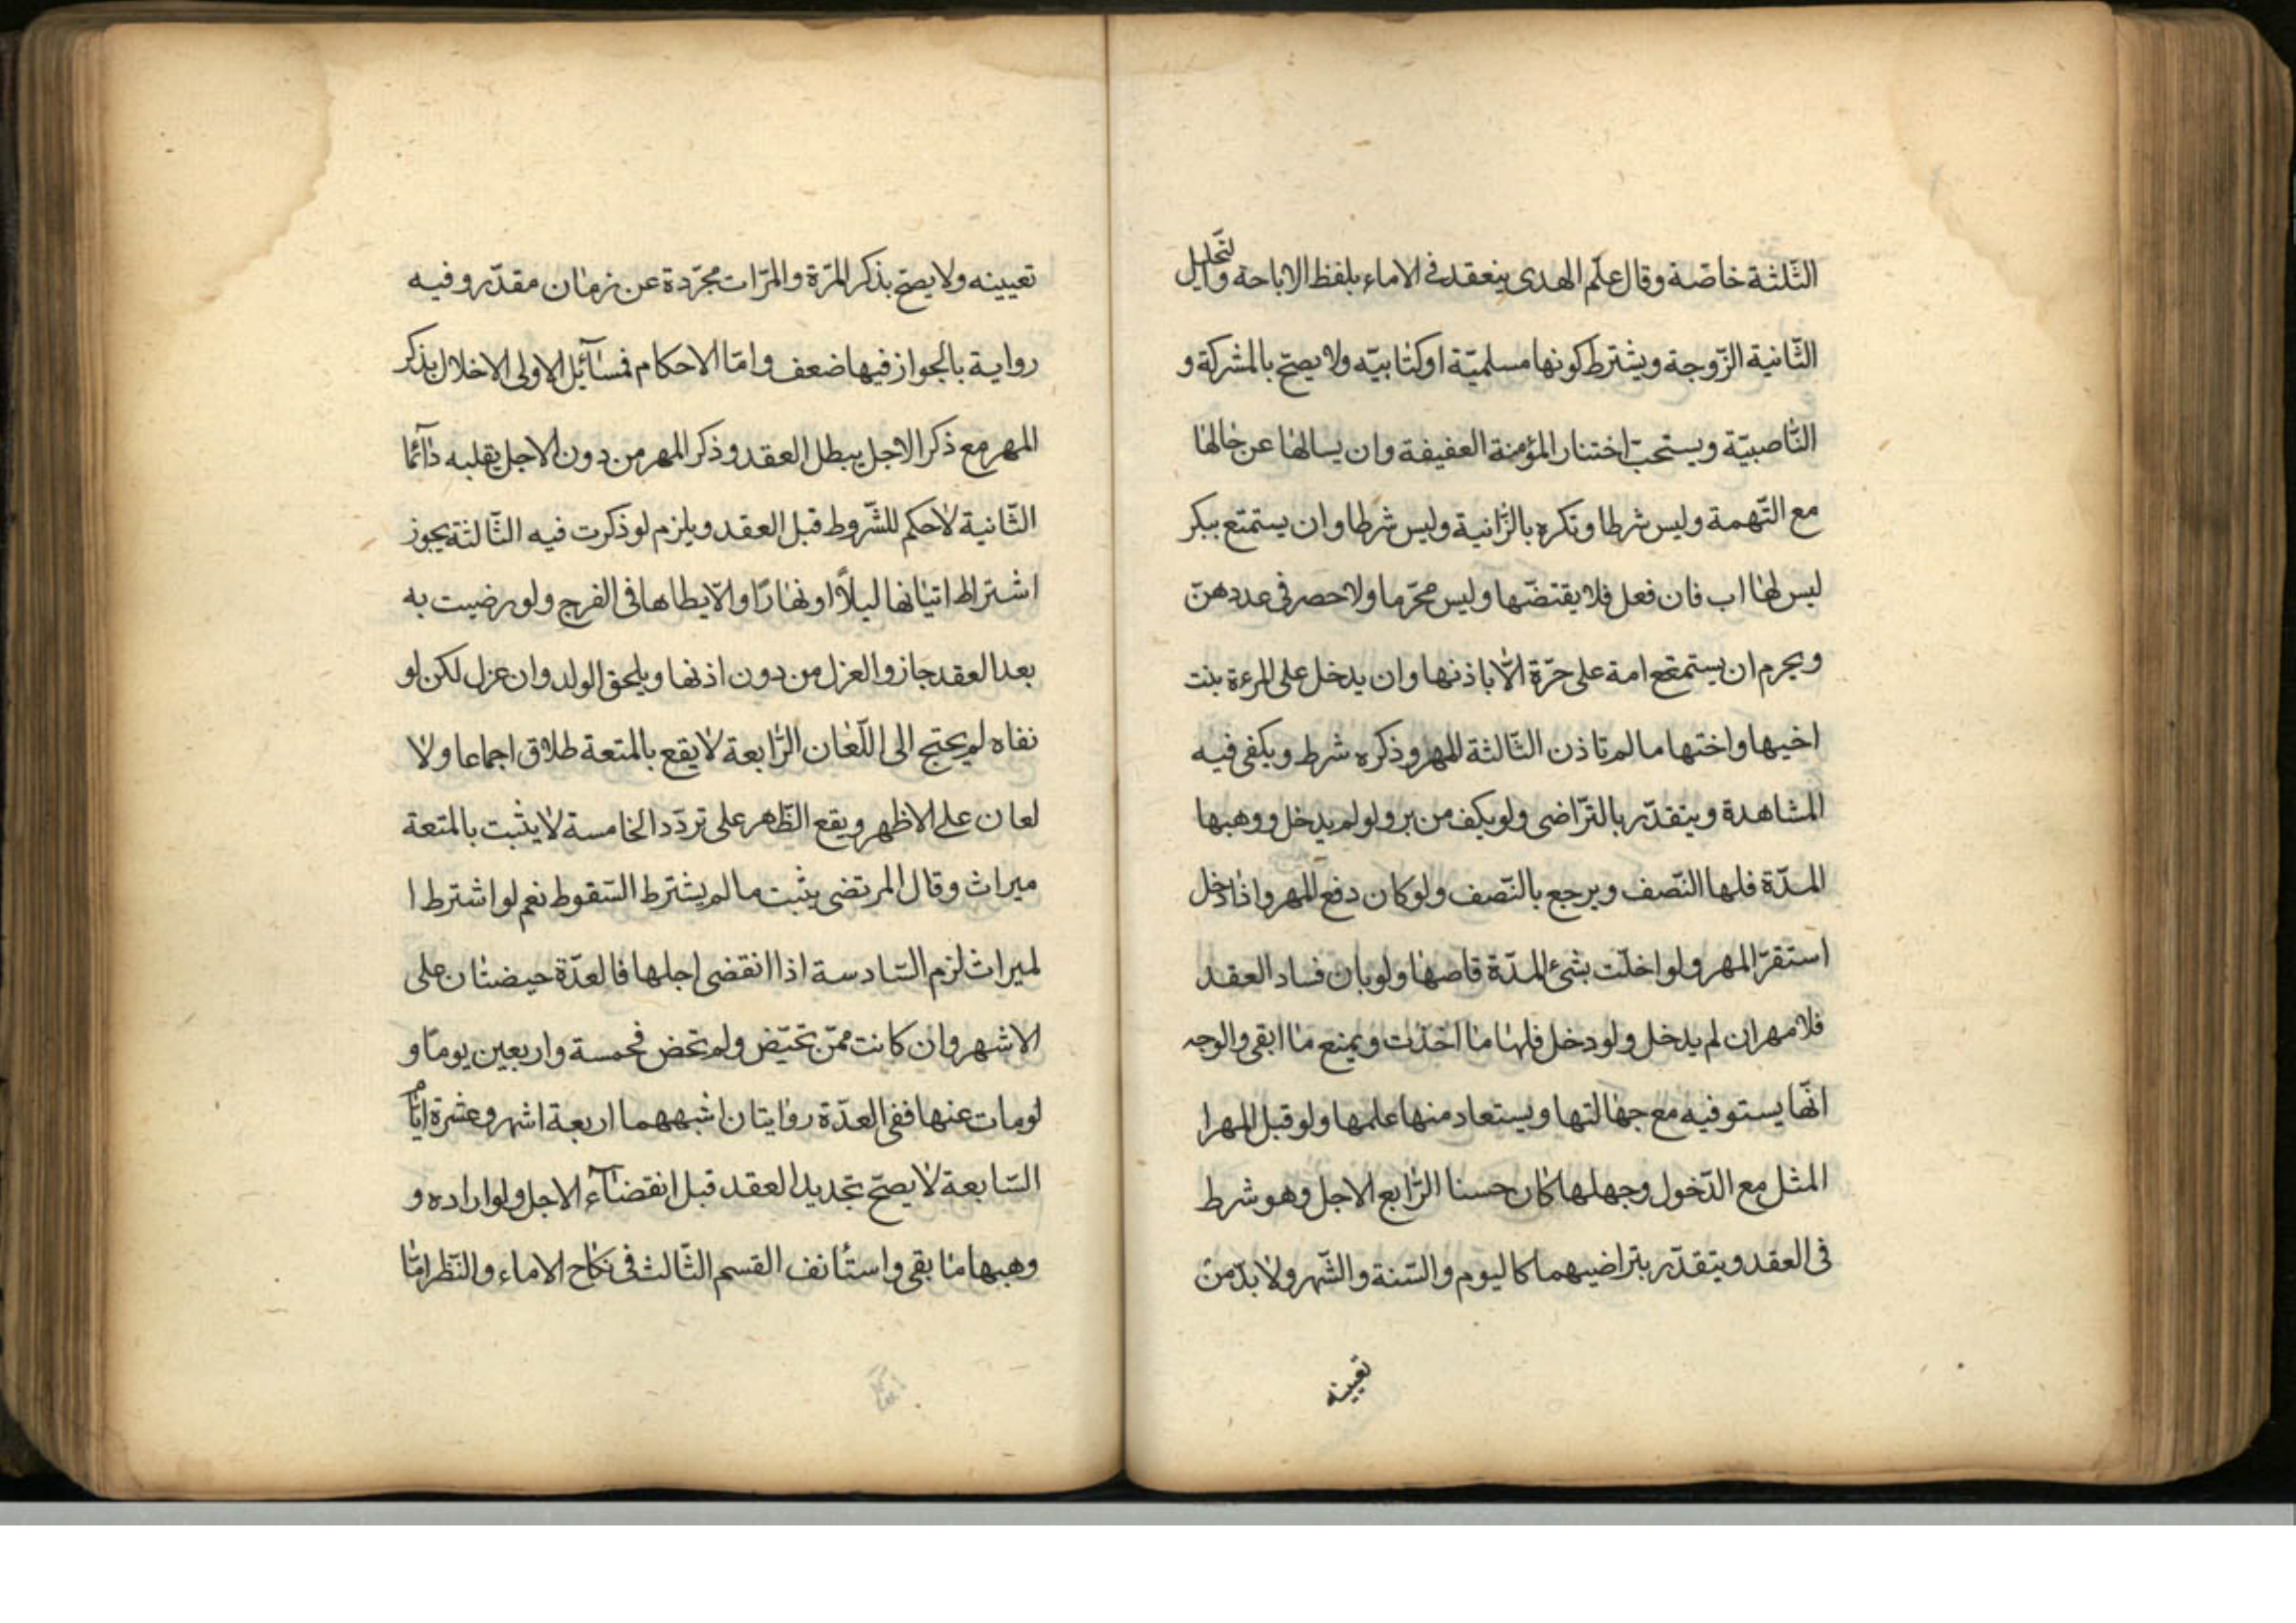 الثّلثة خاصّة وقال علم الهدى ينعقد في الاماء بلفظ الاباحة والتّحليل
الثّانية الزّوجة ويشترط كونها مسلميّة او كتابيّه ولا يصحّ بالمشركة و
النّاصبيّة ويستحبّ اختنار المؤمنة العفيفة وان يسالها عن حالها
مع التّهمة وليس شرطا وتكره بالزّانية وليس شرطا وان يستمتع ببكر
ليس لها اب فان فعل فلا يقتضّها وليس محرّما ولا حصر في عددهنّ
ويحرم ان يستمتع امة على حرّة الّا باذنها وان يدخل على المرءة بنت
اخيها واختها ما لم تاذن الثّالثة المهر وذكره شرط ويكفى فيه
المشاهدة ويتقدّر بالتّراضى ولو بكف من بر ولو لم يدخل ووهبها
المدّة فلها النّصف ويرجع بالنّصف ولو كان دفع المهر واذا دخل
استقرّ المهر ولو اخلّت بشئ المدّة قاصها ولو بان فساد العقد
فلا مهر ان لم يدخل ولو دخل فلها ما اخذت ويمنع ما ابقى والوجه
انّها يستوفيه مع جهالتها ويستعاد منها علمها ولو قبل المهر ا
المثل مع الدّخول وجهلها كان حسنا الرّابع الاجل وهو شرط
فى العقد ويتقدّر بتراضيهما كاليوم والسّنة والشّهر ولا بدّ من
تعيينه
تعيينه ولا يصحّ بذكر المرّة والمرّات مجرّدة عن زمان مقدّر وفيه
رواية بالجواز فيها ضعف وامّا الاحكام فمسآئل الاولى الاخلال بذكر
المهر مع ذكر الاجل يبطل العقد وذكر المهر من دون الاجل يقلبه دآئما
الثّانية لا حكم للشّروط قبل العقد ويلزم لو ذكرت فيه الثّالثة يجوز
اشتراط اتيانها ليلاً او نهارًا والّا يطاها فى الفرج ولو رضيت به
بعد العقد جاز والعزل من دون اذنها ويلحق الولد وان عزل لكن لو
نفاه لم يحتج الى اللّعان الرّابعة لا يقع بالمتعة طلاق اجماعا ولا
لعان على الاظهر ويقع الظّاهر على تردّد الخامسة لا يثبت بالمتعة
ميراث وقال المرتضى يثبت ما لم يشترط السّقوط نعم لو اشترط ا
لميراث لزم السّادسة اذا انقضى اجلها فالعدّة حيضتان على
الاشهر وان كانت ممّن تحيّض ولم تحض فخمسة واربعين يومًا و
لو مات عنها ففى العدّة روايتان اشبههما اربعة اشهر وعشرة ايّام
السّابعة لا يصحّ تجديد العقد قبل انقضآء الاجل ولو اراده و
وهبها ما بقى واستأنف القسم الثّالث فى نكاح الاماء والنّظر امّا